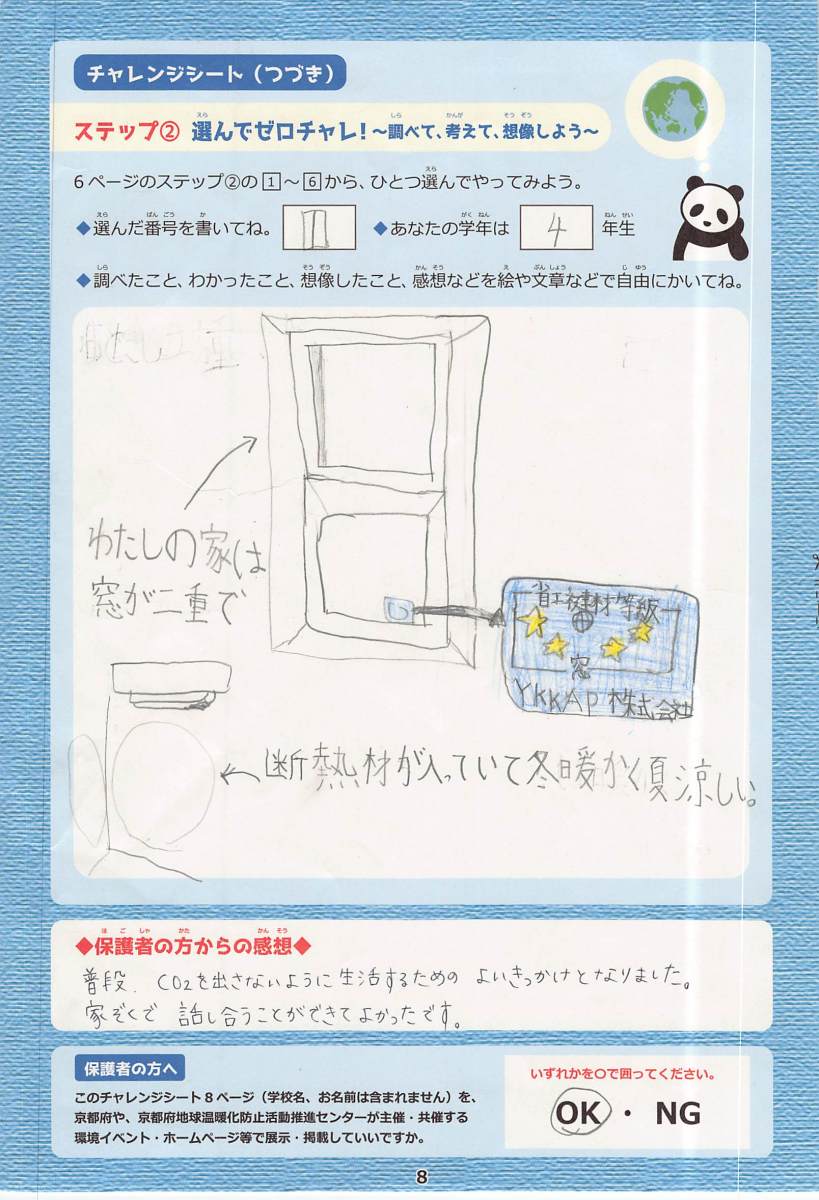 チャレンジシート（つづき）
ステップ② 選んでゼロチャレ！～調べて、考えて、想像しよう～
6ページのステップ②の1～6から、ひとつ選んでやってみよう。
◆選んだ番号を書いてね。 1 ◆あなたの学年は 4 年生
◆調べたこと、わかったこと、想像したこと、感想などを絵や文章などで自由にかいてね。
わたしの家は
窓が二重で
省エネ建材等級
窓
YKKAP株式会社
断熱材が入っていて冬暖かく夏涼しい。
◆保護者の方からの感想◆
普段、CO2を出さないように生活するための よいきっかけとなりました。
家ぞくで 話し合うことができてよかったです。
保護者の方へ
このチャレンジシート8ページ（学校名、お名前は含まれません）を、
京都府や、京都府地球温暖化防止活動推進センターが主催・共催する
環境イベント・ホームページ等で展示・掲載していいですか。
いずれかを○で囲ってください。
OK ・ NG
8